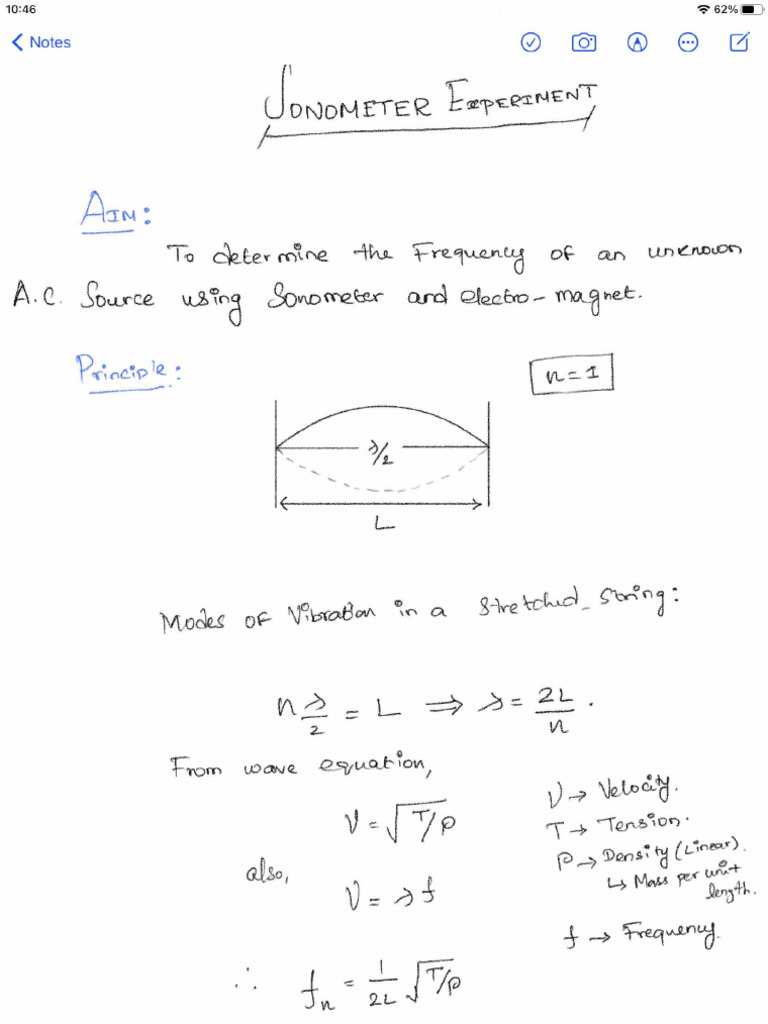 10:46
62%
Notes
SONOMETER EXPERIMENT
AIM:
To determine the Frequency of an unknown
A.C. Source using Sonometer and electro-magnet.
Principle:
n=1
λ/2
L
Modes of Vibration in a stretched string:
n λ/2 = L ⟹ λ = 2L/n.
From wave equation,
V = √T/ρ
also,
V = λf
∴ fn = 1/2L √T/ρ
V → Velocity.
T → Tension.
ρ → Density (Linear).
↳ Mass per unit
length.
f → Frequency.